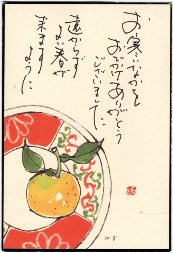 お寒いなかを
おでかけありがとう
ございました
遠からず
よい春が
来ますように